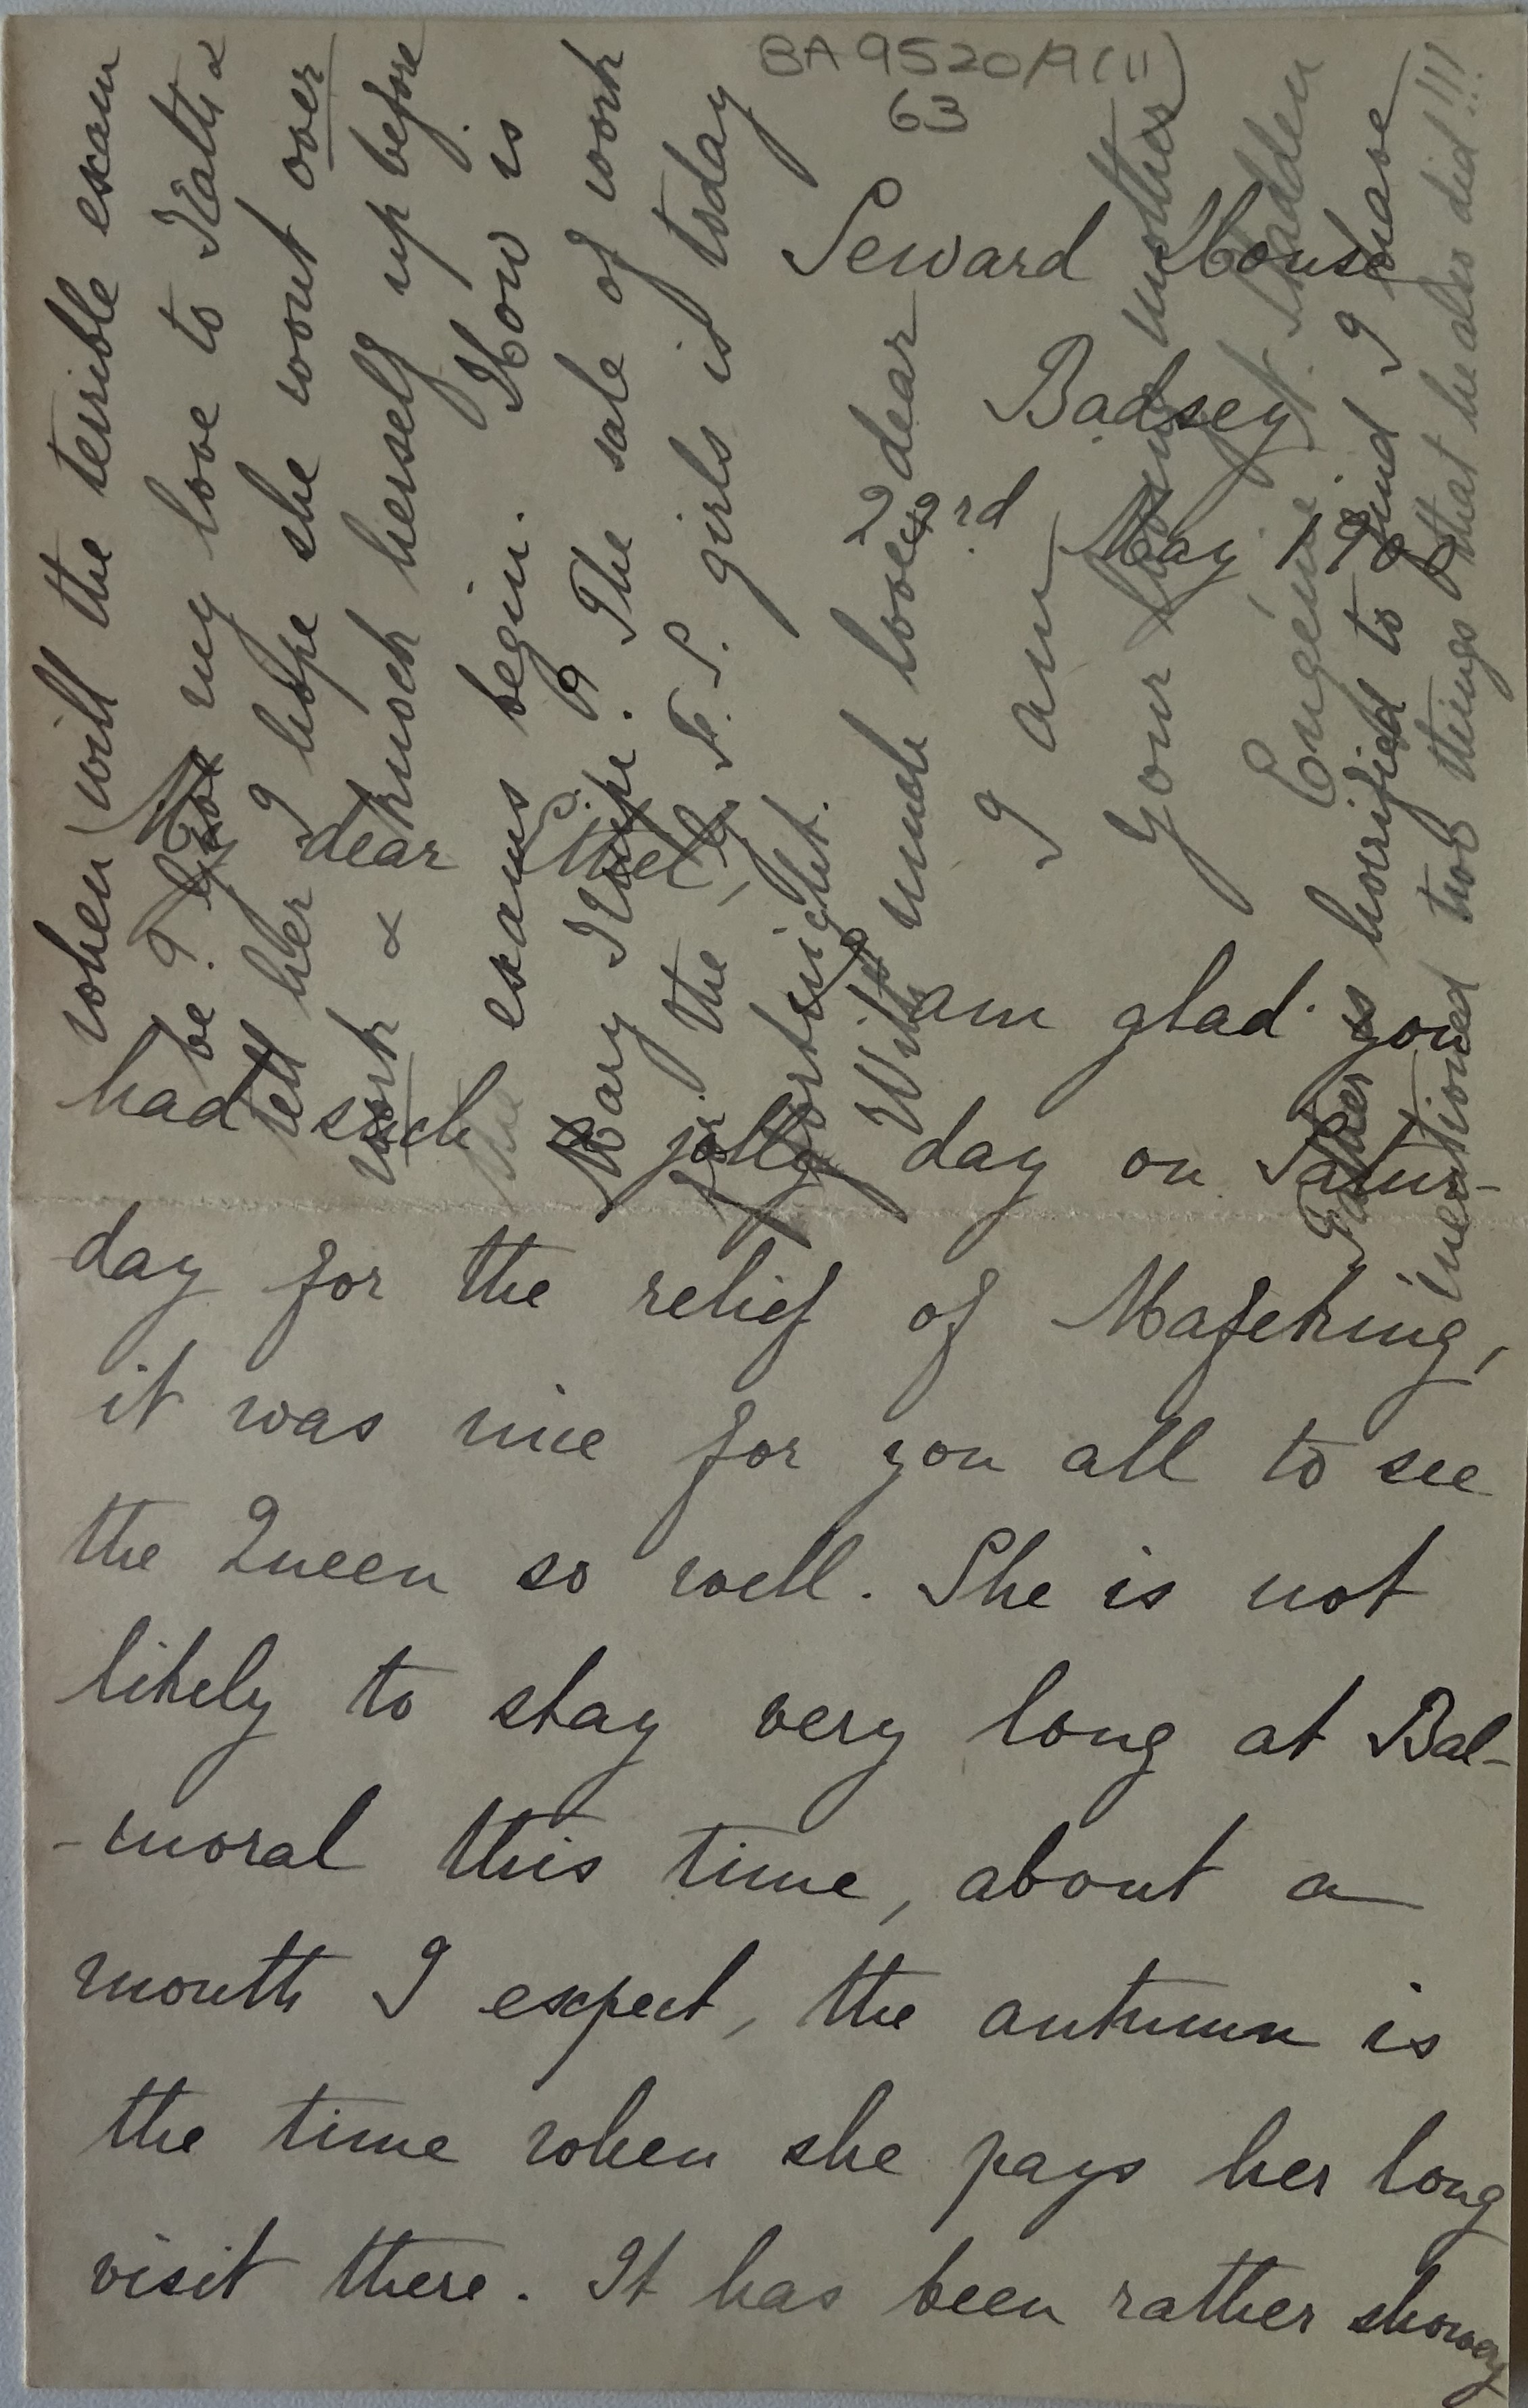 BA 9520/9(11)
63
Seward House
Badsey
23rd May 1900
My dear Ethel,
I am glad you
had such a jolly day on Satur-
day for the relief of Mafeking,
it was nice for you all to see
the Queen so well. She is not
likely to stay very long at Bal-
-moral this time, about a
month I expect, the autumn is
the time when she pays her long
visit there. It has been rather showery
when will the terrible exam
be? Give my love to Kath &
tell her I hope she wont over
work & knock herself up before
the exams begin. How is
Mary Knipe? The sale of work
for the G. F. S. girls is today
fortnight.
With much love dear
I am
Your loving mother
Eugénie N. Sladden
Father is horrified to find I have
mentioned two things that he also did!!!